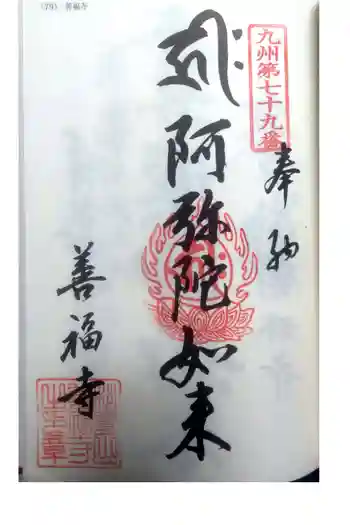 (79) 善福寺
九州第七十九番
奉納
阿弥陀如来
善福寺